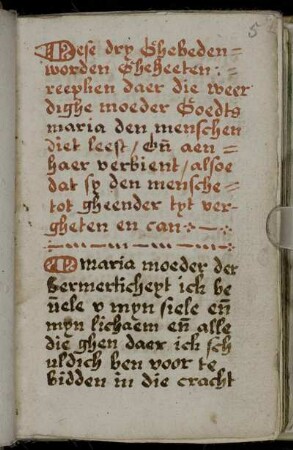 5
Dese dry Ghebeden=
worden Gheheeten:
reepken daer die weer
dighe moeder Goedts
maria den menschen
diet leest / En̄ aen=
haer verbient / alsoe
dat sy den mensche=
tot gheender tyt ver=
gheten en can
O maria moeder der
bermerticheyt ick be
uele v myn siele en̄
myn lichaem en̄ alle
die ghen daer ick sch
uldich ben voor te
bidden in die cracht